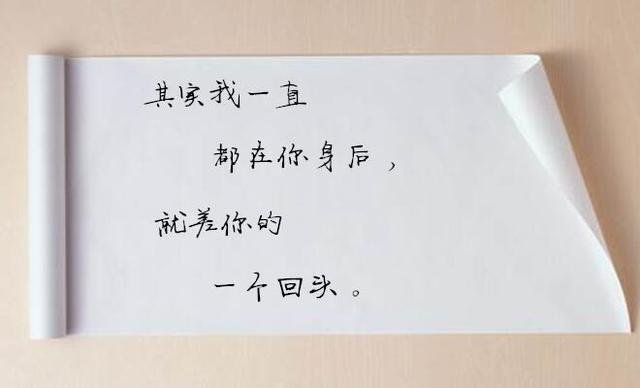 其实我一直
都在你身后，
就差你的
一个回头。